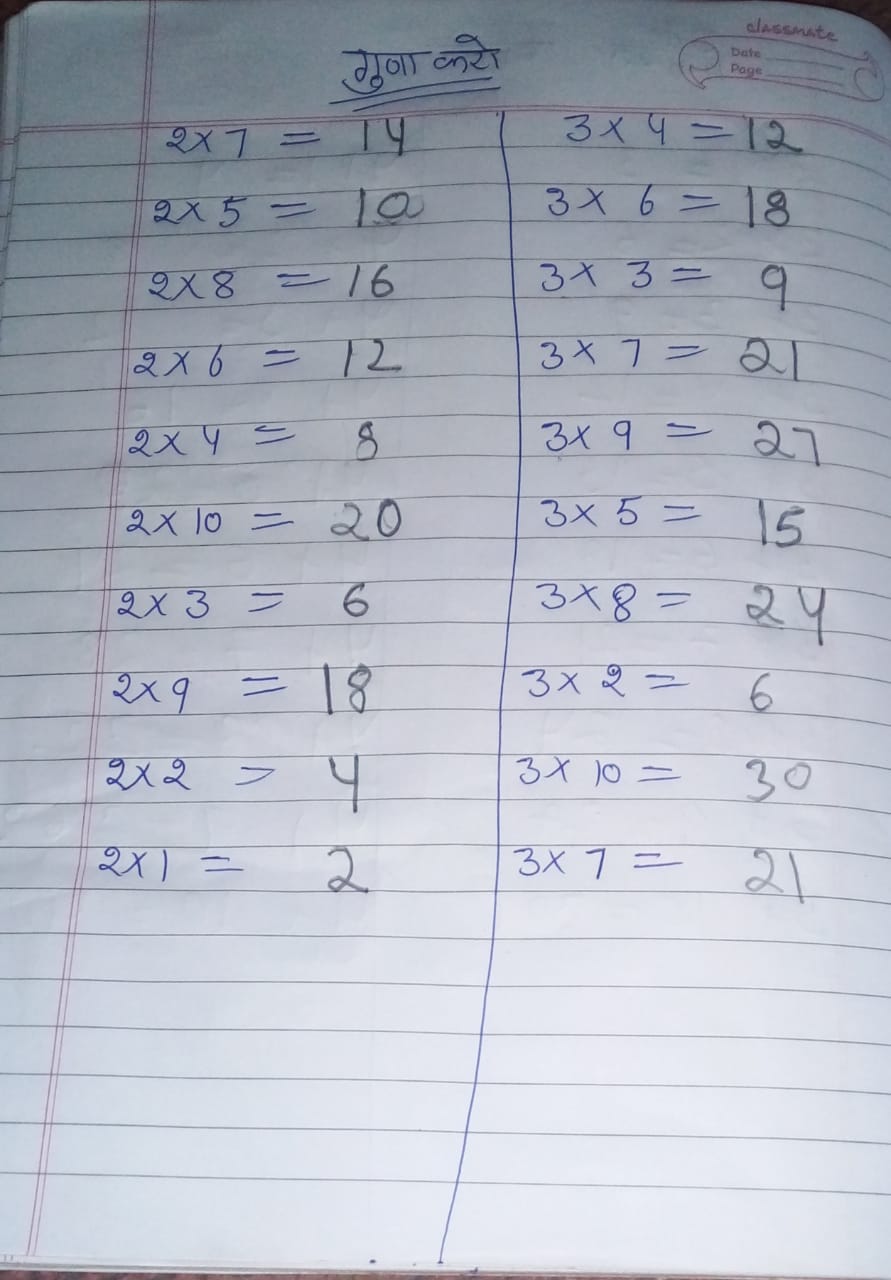 classmate
Date
Page
गुणा करो
2 x 7 = 14
2 x 5 = 10
2 x 8 = 16
2 x 6 = 12
2 x 4 = 8
2 x 10 = 20
2 x 3 = 6
2 x 9 = 18
2 x 2 = 4
2 x 1 = 2
3 x 4 = 12
3 x 6 = 18
3 x 3 = 9
3 x 7 = 21
3 x 9 = 27
3 x 5 = 15
3 x 8 = 24
3 x 2 = 6
3 x 10 = 30
3 x 7 = 21